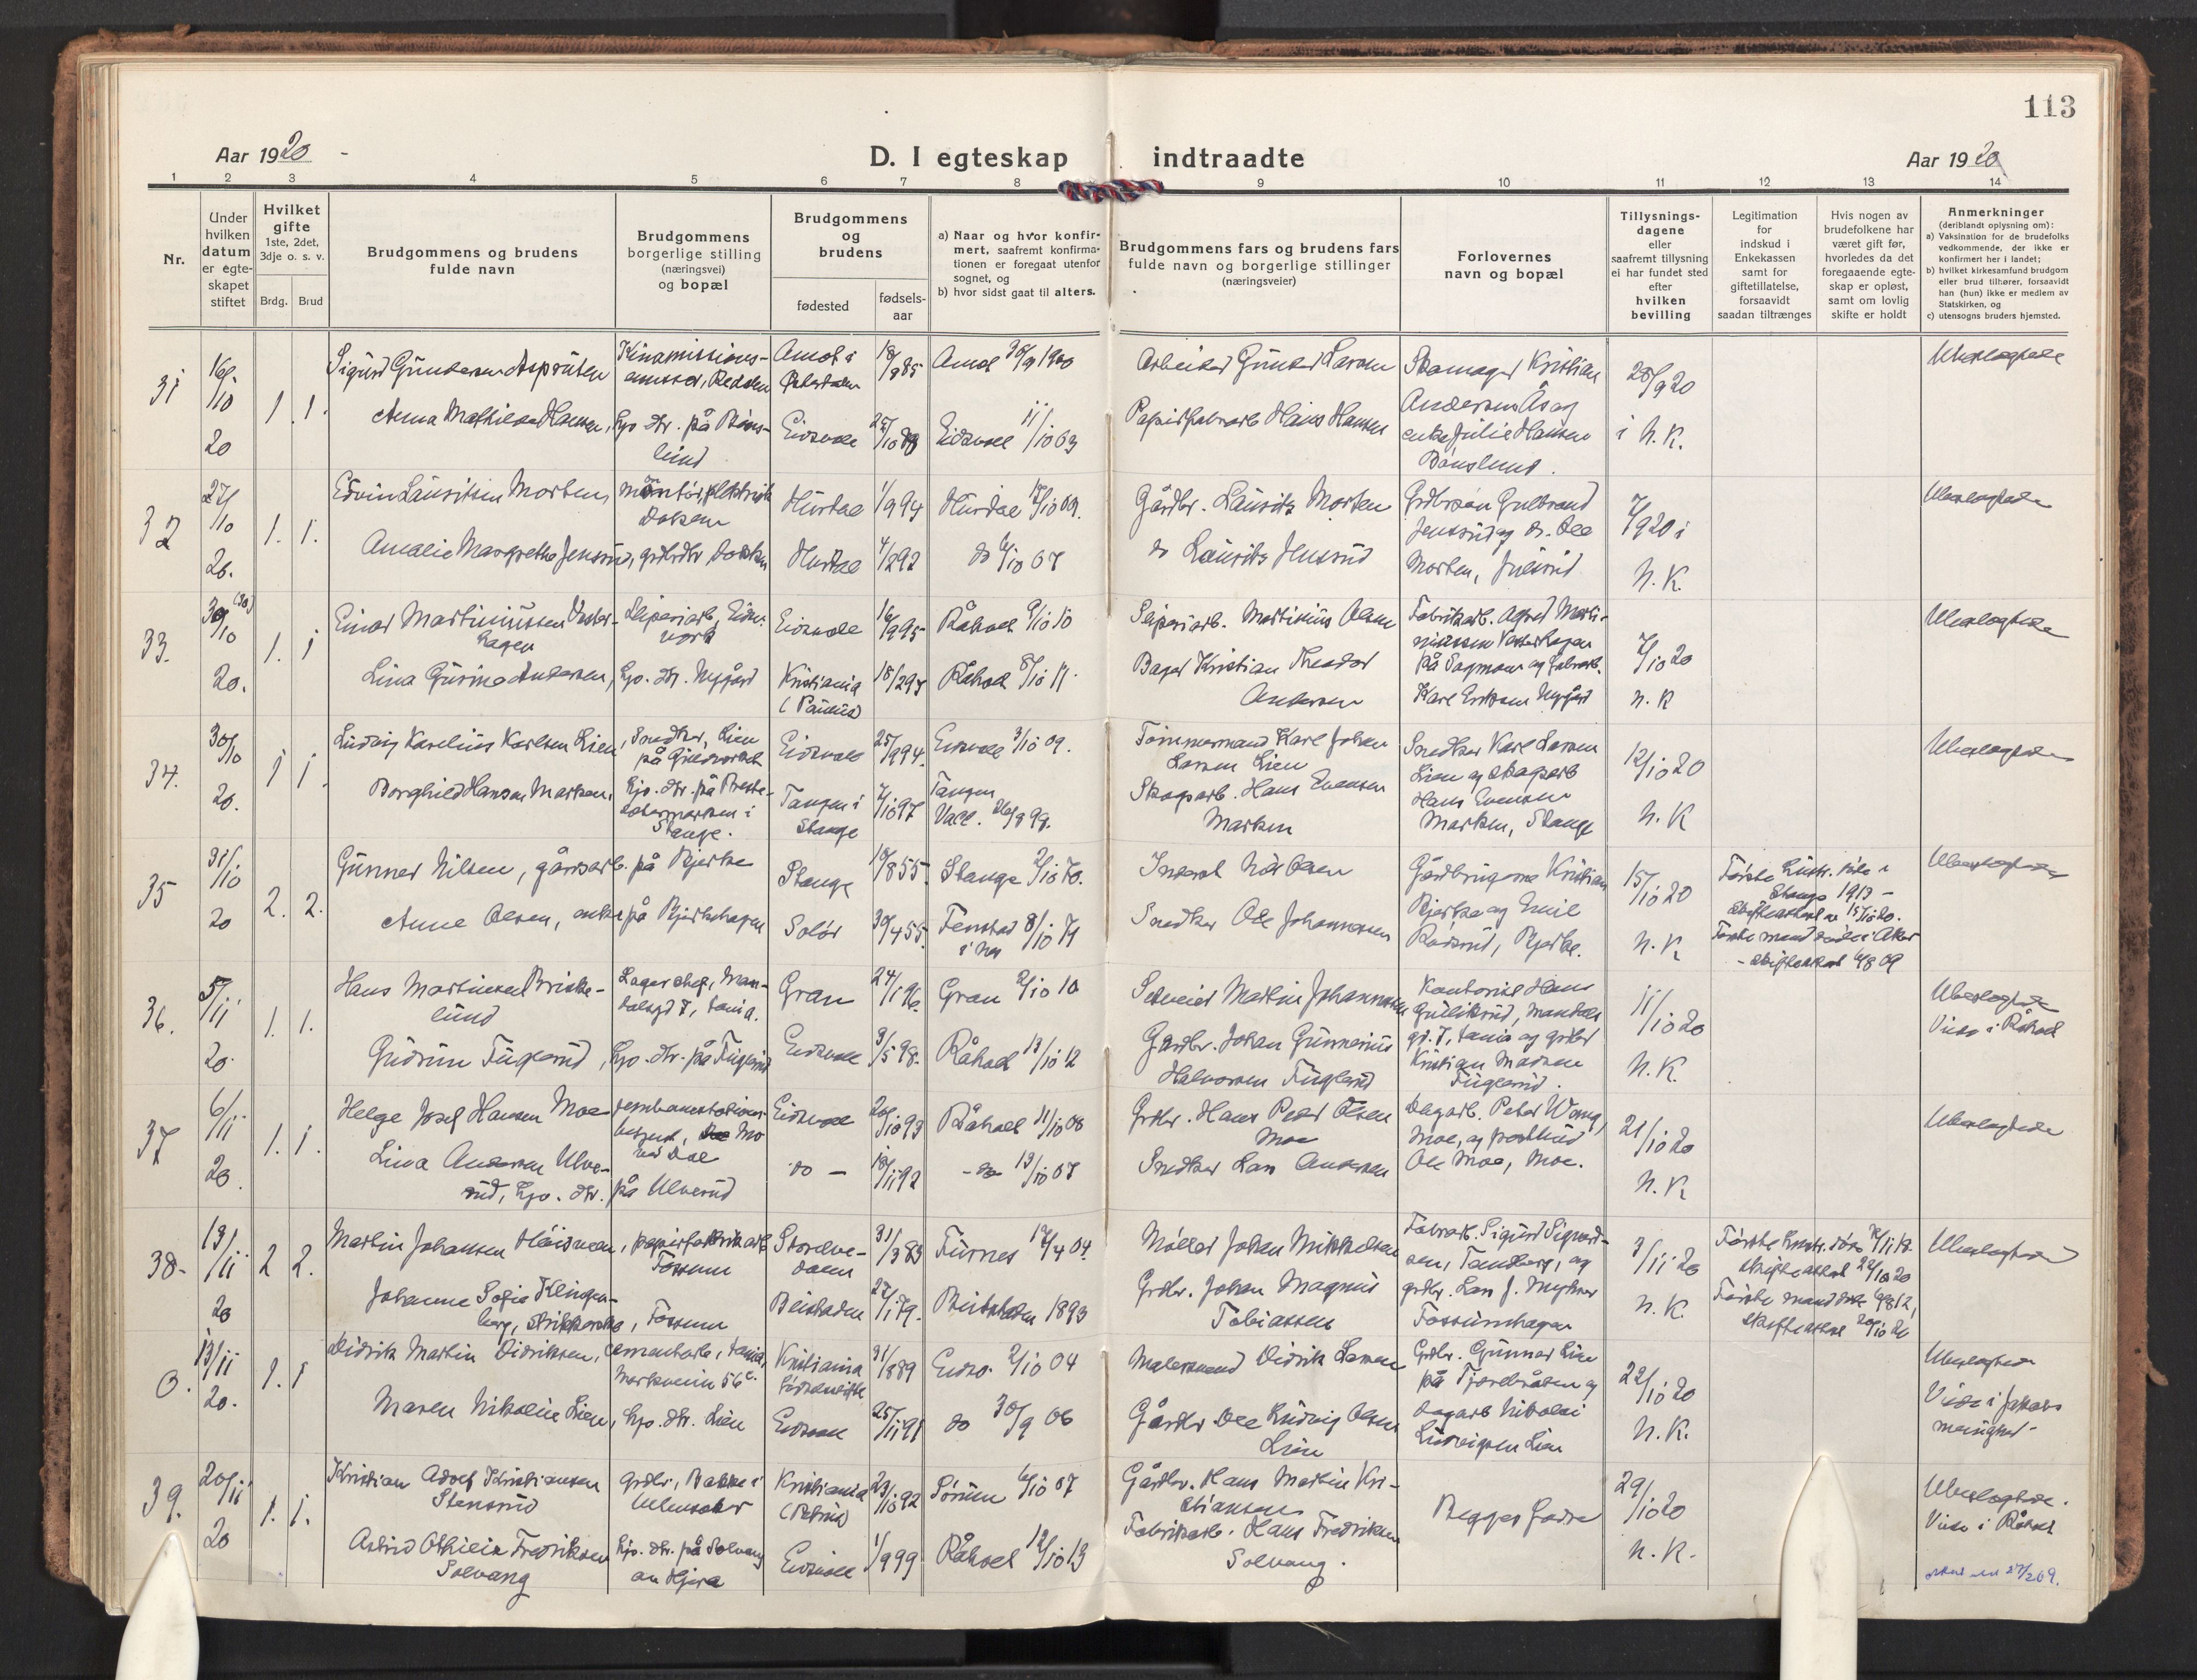 113
Aar 1920
D. I egteskap indtraadte
Aar 1920
1 2 3 4 5 6 7 8 9 10 11 12 13 14
Nr.
Under hvilken datum er egteskapet stiftet
Hvilket gifte
1ste, 2det, 3dje o. s. v.
Brdg. Brud
Brudgommens og brudens fulde navn
Brudgommens borgerlige stilling (næringsvei) og bopæl
Brudgommens og brudens
fødested
fødselsaar
a) Naar og hvor konfirmert, saafremt konfirmationen er foregaat utenfor sognet, og
b) hvor sidst gaat til alters.
Brudgommens fars og brudens fars fulde navn og borgerlige stillinger (næringsveier)
Forlovernes navn og bopæl
Tillysningsdagene eller saafremt tillysning ei har fundet sted efter hvilken bevilling
Legitimation for indskud i Enkekassen samt for giftetillatelse, forsaavidt saadan tiltrænges
Hvis nogen av brudefolkene har været gift før, hvorledes da det foregaaende egteskap er opløst, samt om lovlig skifte er holdt
Anmerkninger
(deriblandt oplysning om):
a) Vaksination for de brudefolks vedkommende, der ikke er konfirmert her i landet;
b) hvilket kirkesamfund brudgom eller brud tilhører, forsaavidt han (hun) ikke er medlem av Statskirken, og
c) utensogns bruders hjemsted.
31
16/10 20
1. 1.
Anna Mathilde Hansen, hjo. dtr. på Bøns-
lund
Amot i
Eidsvoll
Eidsvoll 11/10 03
Arbeider Gunder Larsen
Papirfabrarb Hans Hansen
Skomager Kristian
Andersen Ås og
enke Julie Hansen
Bønslund.
28/9 20
i N. K.
Ubeslegtede
32
27/10 20.
1. 1.
Edvin Lauritsen Morten, montør, elektrisk
Dokken
Hurdal 1/9 94
Amalie Margrethe Jensrud, grdbrdtr Dokken
Hurdal 4/2 92
do 6/10 07
Gårdbr. Laurits Morten
do Laurits Jensrud
Grdbrsøn Gulbrand
Jensrud og do. Ole
Morten, Julsrud
7/9 20 i
N. K.
Ubeslegtede
33.
30/10 20.
1. 1
Einar Martiniussen Vester-
hagen
Sliperiarb, Eidsv.
verk
Eidsvoll 16/9 95
Råholt 9/10 10
Lina Gurine Andersen, hjo. dtr. Nygård
Kristiania
(Paulus)
18/2 97
Råholt 8/10 11.
Sliperiarb. Martinius Olsen
Bager Kristian Theodor
Andersen
Fabrikarb. Alfred Marti-
niussen Vesterhagen
på Sagmoen og fabrarb.
Karl Eriksen Nygård
7/10 20
N. K
Ubeslegtede
34.
30/10 20.
1 1.
Ludvig Karelius Karlsen Lien, Snedker, Lien
på Guldverket
Eidsvoll 25/9 94.
Eidsvoll 3/10 09.
Borghild Hansen Marken, hjo. dtr. på Preste-
Stange.
Tangen i
Stange
7/10 97
Tangen
Vall.
Tømmermand Karl Johan
Larsen Lien
Skogsarb. Hans Evensen
Marken
Snedker Karl Larsen
Lien og skogsarb
Hans Evensen
Marken, Stange
12/10 20
N. K
Ubeslegtede
35
31/10 20
2. 2.
Gunner Nilsen, gårdsarb. på Bjerke
Stange
Stange 2/10 70.
Anne Olsen, enke på Bjerkehagen
Solør 30/4 55.
Fenstad 8/10 71
i Nes
Inderst Nils Olsen
Snedker Ole Johannesen
Gårdbrugerne Kristian
Bjerke og Emil
Rådsrud, Bjerke.
15/10 20
N. K
Første hustr. døde i
Stange 1913 -
skifteattest av 15/10 20.
Første mand døde i Aker
- skifteattest 6/8 09
Ubeslegtede
36.
5/11 20.
1. 1.
Hans Martinsen Briske-
lund
Lagerchef, Man-
dalsgd 7, Kania.
Gran 24/1 96.
Gran 2/10 10
Gudrun Fuglerud, hjo. dtr. på Fuglerud
Eidsvoll 3/5 98.
Råholt 13/10 12
Selveier Martin Johannesen
Gårdbr. Johan Gunnerius
Halvorsen Fuglerud
Kontorist Hans
Gulliksrud, Mandals
gd. 7, Kania og grdbr
Kristian Madsen
Fuglerud.
11/10 20
N. K.
Ubeslegtede
Viede i Råholt
37
6/11 20.
1. 1.
Helge Josef Hansen Moe
jernbanestations-
betjent, Mo
ved Dal
Eidsvoll 20/10 93
Råholt 11/10 08
Lina Andersen Ulve-
rud, hjo. dtr. på Ulverud
do - 18/11 92
- do 13/10 07
Grdbr. Hans Peder Olsen
Moe
Snedker Lars Andersen
Dagarb. Peter Wang,
Moe, og postbud
Ole Moe, Moe.
21/10 20
N. K
Ubeslegtede
38.
13/11 20
2 2.
Martin Johansen Høisveen, papirfabrikarb
Fossum
Storelve-
dalen
31/3 83
Furnes 12/4 04.
Johanne Sofie Klingen-
berg, strikkerske, Fossum
Beitstaden 27/1 79.
Beitstaden 1893
Møller Johan Mikkelsen
Grdbr. Johan Magnus
Tobiassen
Fabrarb. Sigurd Sigurd-
sen, Tandberg, og
grdbr. Lars J. Myhrer
Fossumhagen
3/11 20
N. K.
Første hustr. døde
skifteattest 22/10 20
Første mand døde
skifteattest 20/10 20
Ubeslegtede
0.
13/11 20.
1. 1
Didrik Martin Didriksen, cementarb, Kania,
Markveien 56 c.
Kristiania
fødselsstiftelse
31/8 89
Eidsv. 2/10 04
Maren Nikoline Lien, hjo. dtr. Lien
Eidsvoll 25/11 91
do 30/9 06
Malersvend Didrik Larsen
Gårdbr Ole Ludvig Olsen
Lien
Grdbr. Gunnar Lien
på Fjærebråten og
dagarb Nikolai
Ludvigsen Lien
22/10 20
N. K.
Ubeslegtede
Viede i Jakobs
menighet.
39.
20/11 20
1. 1.
Kristian Adolf Kristiansen
Stensrud
Grdbr, Bakke i
Ullensaker
Kristiania
(Petrus)
23/10 92
Sørum 6/10 07
Astrid Othilie Fredriksen
Solvang
hjo. dtr. på Solvang
Eidsvoll 1/9 99
Råholt 12/10 13
Gårdbr. Hans Martin Kri-
stiansen
Fabrikarb. Hans Fredriksen
Solvang.
Begges fædre
29/10 20
N. K.
Ubeslegtede.
Viede i Råholt